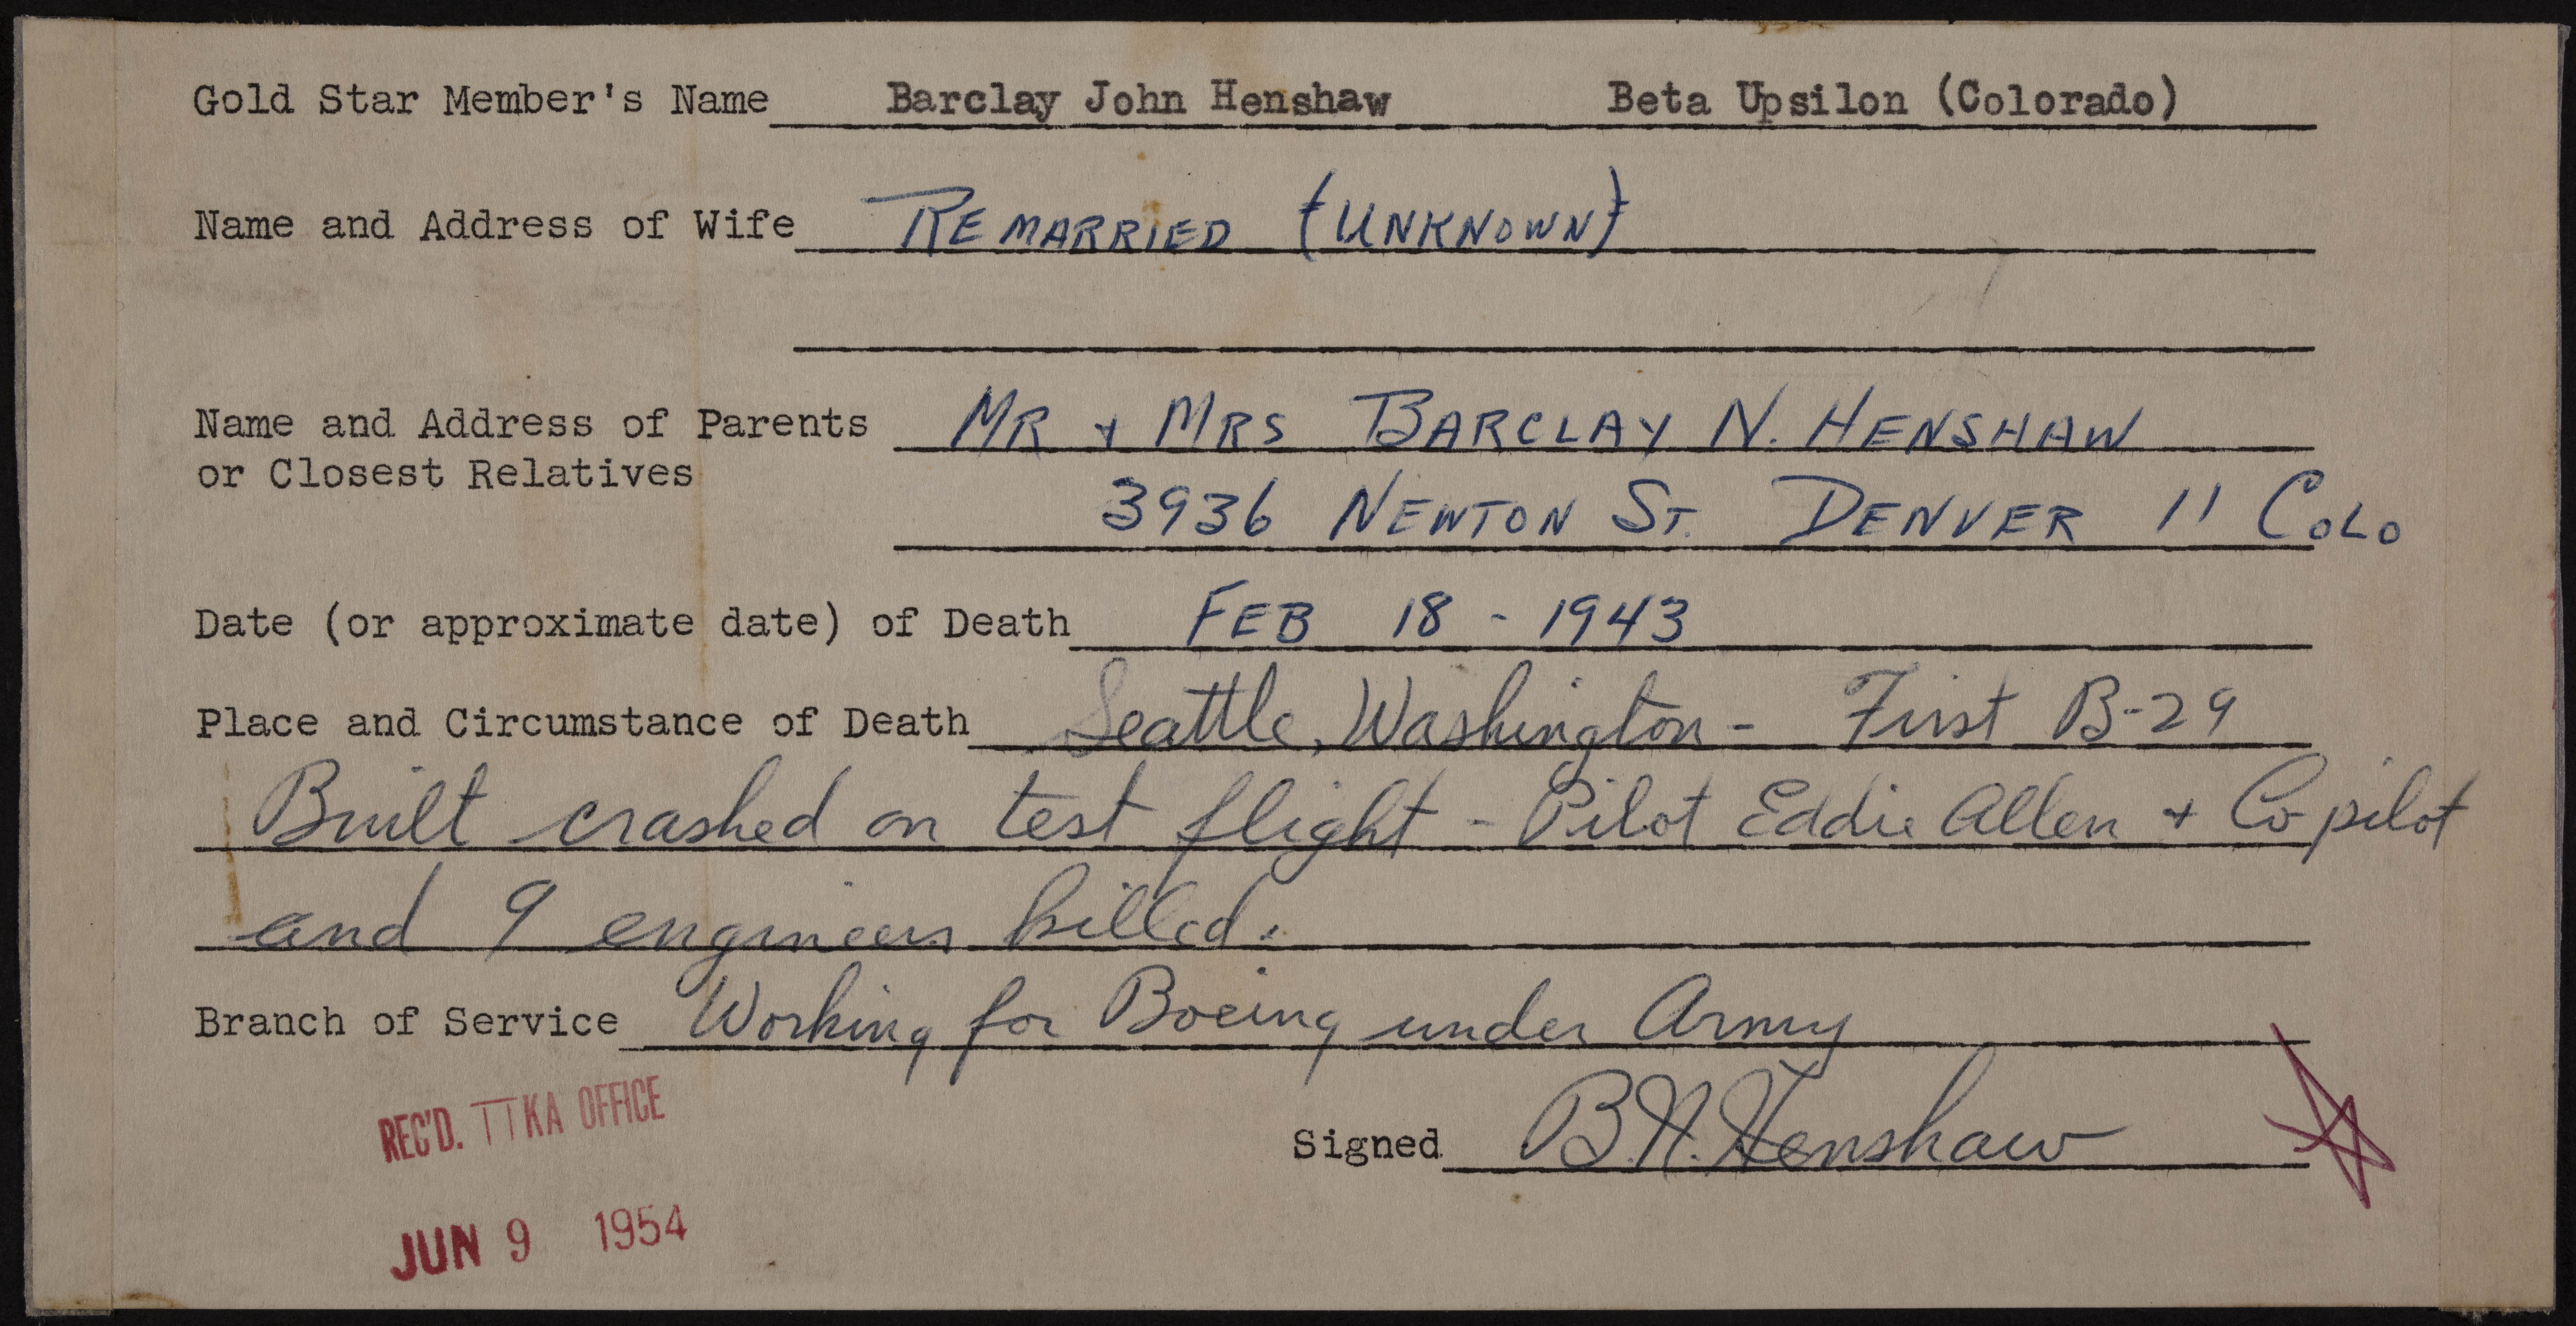 Gold Star Member's Name Barclay John Henshaw Beta Upsilon (Colorado)
Name and Address of Wife REMARRIED (UNKNOWN)
Name and Address of Parents MR + MRS BARCLAY N. HENSHAW
or Closest Relatives
3936 NEWTON ST. DENVER 11 COLO
Date (or approximate date) of Death FEB 18 - 1943
Place and Circumstance of Death Seattle, Washington - First B-29
Built crashed on test flight - Pilot Eddie Allen + Co pilot
and 9 engineers killed.
Branch of Service Working for Boeing under Army
REC'D. ΠKA OFFICE
Signed B.N. Henshaw
JUN 9 1954